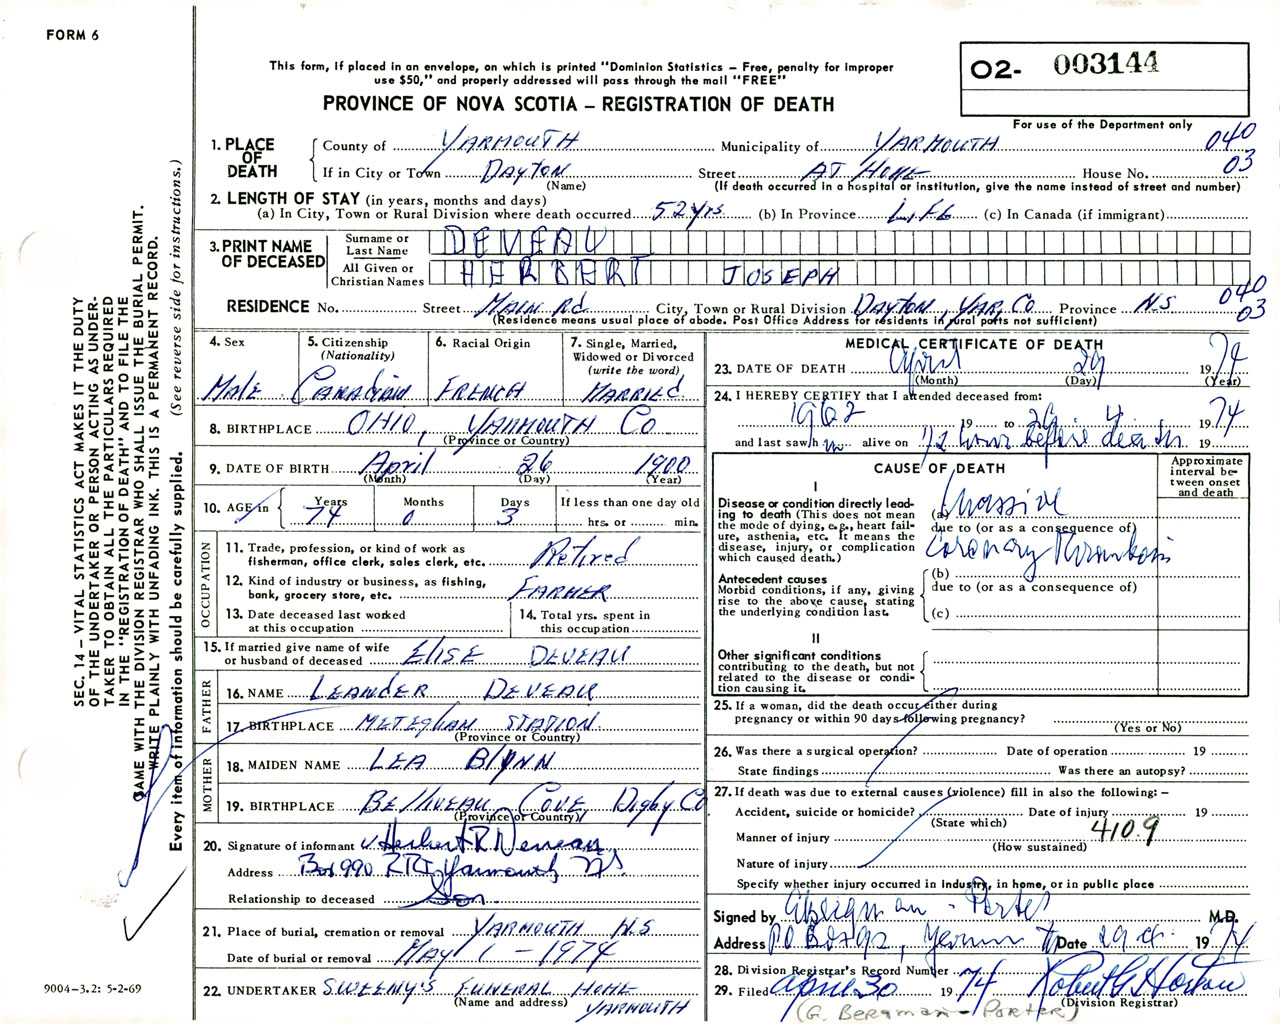 FORM 6
This form, if placed in an envelope, on which is printed "Dominion Statistics – Free, penalty for improper
use $50," and properly addressed will pass through the mail "FREE"
PROVINCE OF NOVA SCOTIA – REGISTRATION OF DEATH
O2- 003144
For use of the Department only
1. PLACE OF DEATH
County of YARMOUTH Municipality of YARMOUTH 040
If in City or Town DAYTON Street AT HOME House No. 03
(Name) (If death occurred in a hospital or institution, give the name instead of street and number)
2. LENGTH OF STAY (in years, months and days)
(a) In City, Town or Rural Division where death occurred 52 yrs (b) In Province LIFE (c) In Canada (if immigrant)
3. PRINT NAME OF DECEASED
Surname or Last Name DEVEAU
All Given or Christian Names HERBERT JOSEPH
RESIDENCE No. Street MAIN Rd City, Town or Rural Division DAYTON, YAR, CO Province N.S 040 03
(Residence means usual place of abode. Post Office Address for residents in rural parts not sufficient)
4. Sex
MALE
5. Citizenship
(Nationality)
CANADIAN
6. Racial Origin
FRENCH
7. Single, Married,
Widowed or Divorced
(write the word)
MARRIED
8. BIRTHPLACE OHIO, YARMOUTH CO
(Province or Country)
9. DATE OF BIRTH April 26 1900
(Month) (Day) (Year)
10. AGE in
Years 74
Months 0
Days 3
If less than one day old
hrs. or min.
OCCUPATION
11. Trade, profession, or kind of work as
fisherman, office clerk, sales clerk, etc. Retired
12. Kind of industry or business, as fishing,
bank, grocery store, etc. FARMER
13. Date deceased last worked
at this occupation
14. Total yrs. spent in
this occupation
15. If married give name of wife
or husband of deceased ELISE DEVEAU
FATHER
16. NAME LEANDER DEVEAU
17. BIRTHPLACE METEGHAN STATION
(Province or Country)
MOTHER
18. MAIDEN NAME LEA BlYNN
19. BIRTHPLACE BELLIVEAU COVE, Digby Co
(Province or Country)
20. Signature of informant Herbert R Deveau
Address Box 990 RR1 Yarmouth N.S.
Relationship to deceased Son
21. Place of burial, cremation or removal YARMOUTH N.S
Date of burial or removal MAY 1 – 1974
22. UNDERTAKER SWEENY'S FUNERAL HOME
(Name and address) YARMOUTH
MEDICAL CERTIFICATE OF DEATH
23. DATE OF DEATH April 29 1974
(Month) (Day) (Year)
24. I HEREBY CERTIFY that I attended deceased from:
1962 19 to 29 4 1974
and last saw him alive on 1/2 hour before death 19
CAUSE OF DEATH
Approximate
interval be-
tween onset
and death
I
Disease or condition directly lead-
ing to death (This does not mean
the mode of dying, e.g., heart fail-
ure, asthenia, etc. It means the
disease, injury, or complication
which caused death.)
(a) Massive
due to (or as a consequence of)
Coronary Thrombosis
Antecedent causes
Morbid conditions, if any, giving
rise to the above cause, stating
the underlying condition last.
(b)
due to (or as a consequence of)
(c)
II
Other significant conditions
contributing to the death, but not
related to the disease or condi-
tion causing it.
25. If a woman, did the death occur either during
pregnancy or within 90 days following pregnancy?
(Yes or No)
26. Was there a surgical operation? Date of operation 19
State findings Was there an autopsy?
27. If death was due to external causes (violence) fill in also the following: –
Accident, suicide or homicide? Date of injury 19
(State which)
Manner of injury 410.9
(How sustained)
Nature of injury
Specify whether injury occurred in industry, in home, or in public place
Signed by GBergman - Porter M.D.
Address PO Box Date 29 4 1974
28. Division Registrar's Record Number
29. Filed April 30 1974 Robert G Horton
(Division Registrar)
(G. BERGMAN - PORTER)
SEC. 14 – VITAL STATISTICS ACT MAKES IT THE DUTY
OF THE UNDERTAKER OR PERSON ACTING AS UNDER-
TAKER TO OBTAIN ALL THE PARTICULARS REQUIRED
IN THE "REGISTRATION OF DEATH" AND TO FILE THE
SAME WITH THE DIVISION REGISTRAR WHO SHALL ISSUE THE BURIAL PERMIT.
WRITE PLAINLY WITH UNFADING INK. THIS IS A PERMANENT RECORD.
Every item of information should be carefully supplied. (See reverse side for instructions.)
9004-3.2: 5-2-69